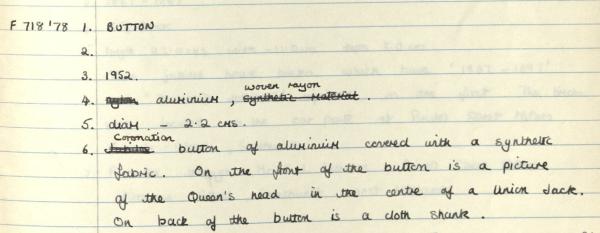 F 718 '78 1. BUTTON
2.
3. 1952.
woven rayon
4. nylon aluminium, synthetic material.
5. diam. - 2.2 cms.
Coronation
6. button of aluminium covered with a synthetic
fabric. On the front of the button is a picture
of the Queen's head in the centre of a Union Jack.
On back of the button is a cloth shank.